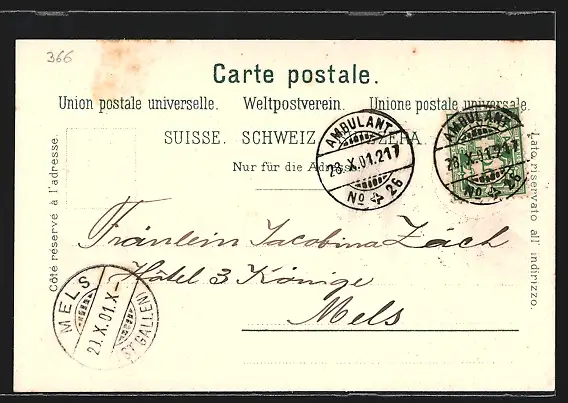 366
Carte postale.
Union postale universelle. Weltpostverein. Unione postale universale.
SUISSE. SCHWEIZ. SVIZZERA.
Nur für die Adresse.
Côté réservé à l'adresse.
Lato riservato all' indirizzo.
AMBULANT
28.X.01.217
No 26
AMBULANT
28.X.01.217
No 26
Fräulein Jacobina Zäch
Hôtel 3 Könige
Mels
MELS
29.X.01.X-
(ST. GALLEN)